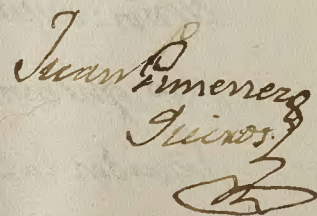 Juan Ximenez
Quiros